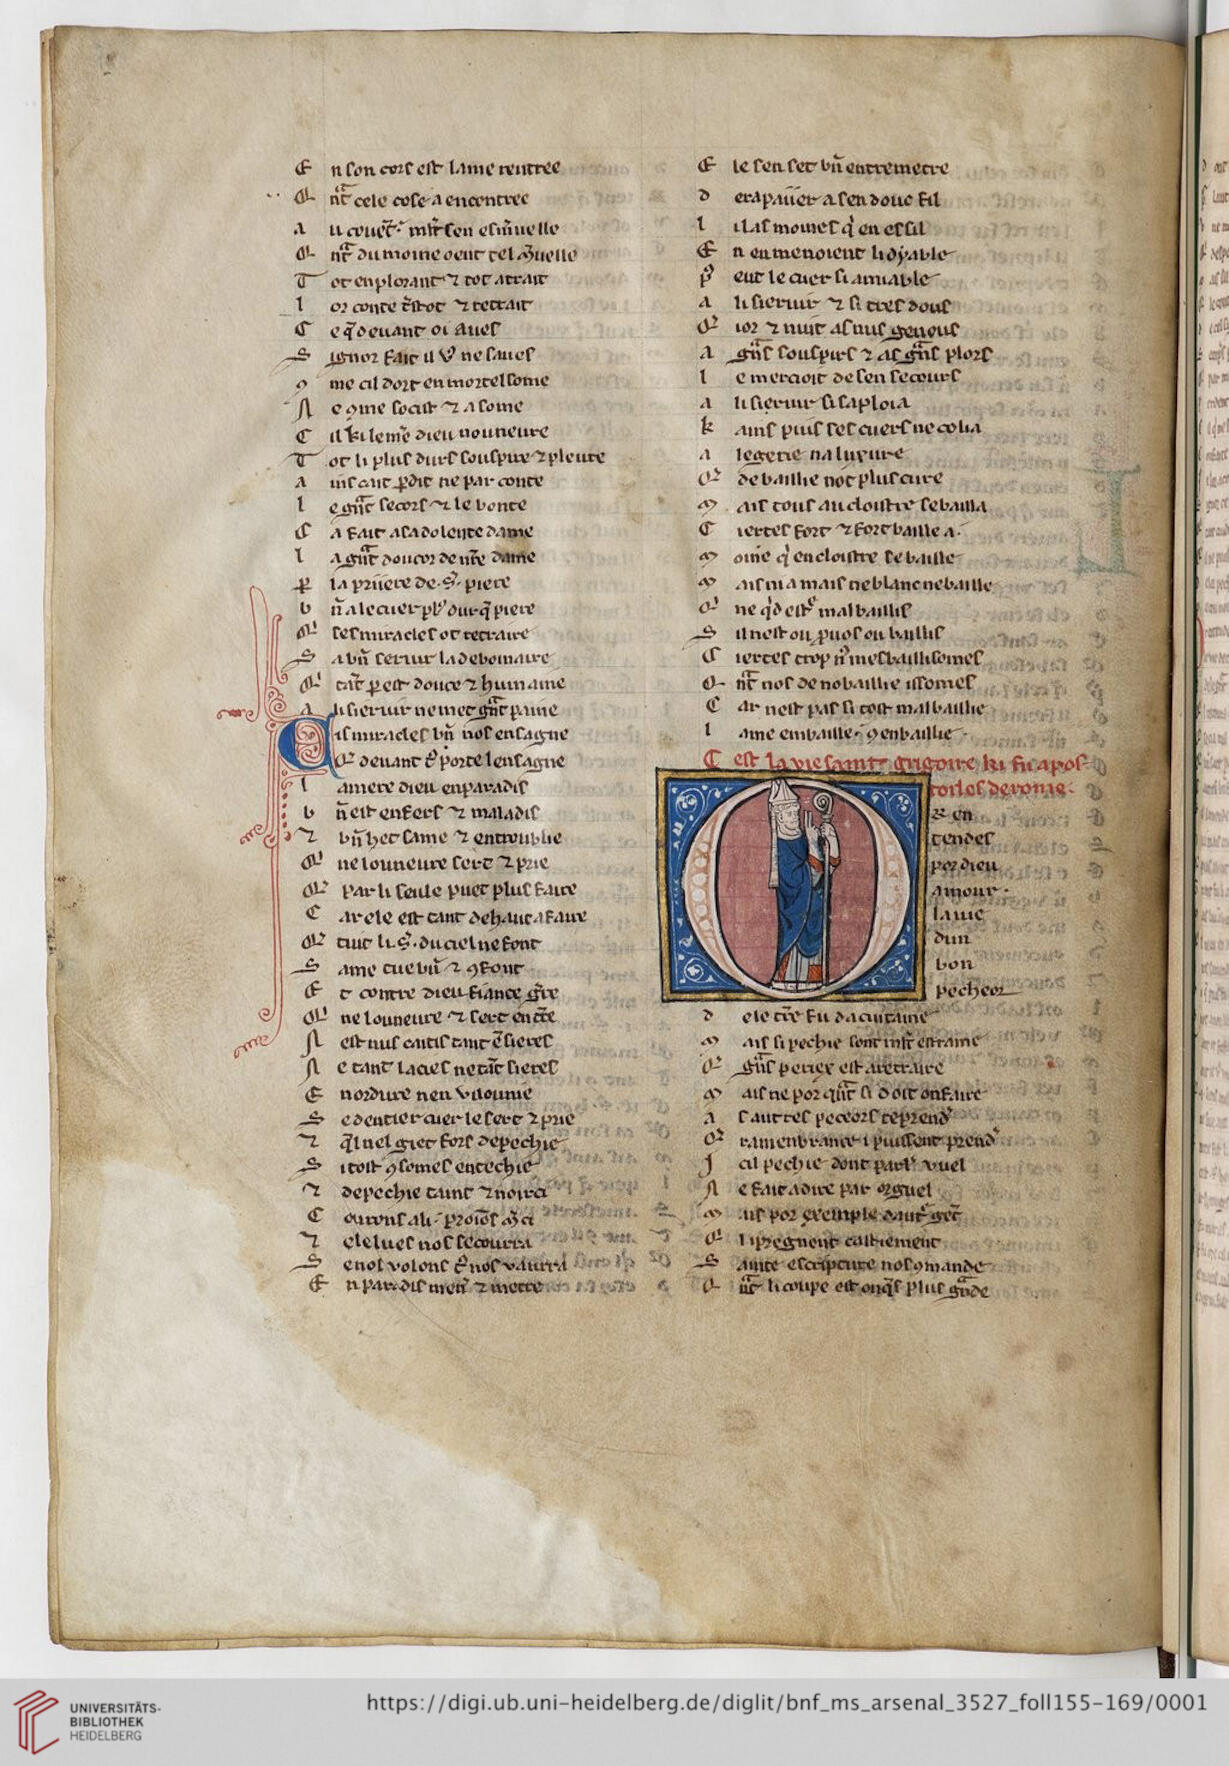 E n son cors est lame rentree
Q nt cele cose a encontree
a u couēt mlt sen esmuelle
Q nt du moine oent tel muelle
T ot en plorant ⁊ tot atrait
l or conte tstot ⁊ retrait
C e q deuant oi aues
S ignor fait il ne saues
me cil dort en mortel some
N e 9me socist ⁊ a some
C il ki lemē dieu nouneure
T ot li plus durs souspire ⁊ pleure
a ins cait pdit ne par conte
l e gnt secors ⁊ le bonte
C a fait a sa dolente dame
l a gnt doucor de nrē dame
P la priiere de .S. piere
b n a le cuer pl dur q piere
Q ses miracles ot retraire
S a bn seruir la debonaire
Q tāt p est douce ⁊ humaine
a li seruir ne met gnt paine
C is miracles bn nos ensagne
Q deuant porte lensagne
l a mere dieu en paradis
b n est enfers ⁊ maladis
⁊ bn het same ⁊ entroublie
Q ne louneure sert ⁊ prie
Q par li seule puet plus faire
C ar ele est tant de haut afaire
Q tuit li .S. du ciel ne font
S ame tue bn ⁊ 9font
E t contre dieu fiance
Q ne louneure ⁊ sert en
N est nus caitis tant
N e tant lacies ne tāt sieres
E n ordure n en vilounie
S e dentier cuer le sert ⁊ prie
⁊ qlnel giet fors de pechie
S i tost 9 somes entechie
⁊ de pechie taint ⁊ noirci
C ourons a li
⁊ ele lues nos secourra
S e nos volons nos vaurra
E n paradis men ⁊ metre
E le sen set bn entremetre
d
l i las moines q en essil
E n en menoient li dyable
P eut le cuer si amiable
a li seruir ⁊ si tres dous
Q ior ⁊ nuit as nus genous
a gns souspirs ⁊ as gns plors
l e mercioit de sen secours
a li seruir si saploia
k ains puis ses cuers ne colia
a legerie na luxure
Q de baillie not plus cure
M ais tous au cloistre se bailla
C iertes fort ⁊ fort bailla
M oine q en cloistre se baille
M ais ni a mais ne blanc ne baille
Q ne qd est mal baillis
S il nest ou puos ou baillis
C iertes trop nmesbaillisomes
Q nt nos de no baillie issomes
C ar nest pas si tost mal baillie
l ame en baille 9 en baillie
C est la vie saint grigoire ki fu apos
toiles de rome
O R en
tendes
por dieu
amour
la uie
dun
bon
pecheor
d ele tre fu dacuitaine
M ais si pechie sont mlt estraine
Q gns periex est a retraire
M ais ne por qnt si doit on faire
a s autres peceors reprend
Q ramenbrance i puissent prend
J cil pechie dont parl vuel
N e fait a dire par orguel
M ais por exemple daut get
Q i pregnent castiement
S ainte escripture nos 9mande
Q nt li coupe est onqs plus gnde
UNIVERSITÄTS-
BIBLIOTHEK
HEIDELBERG
https://digi.ub.uni-heidelberg.de/diglit/bnf_ms_arsenal_3527_foll155-169/0001